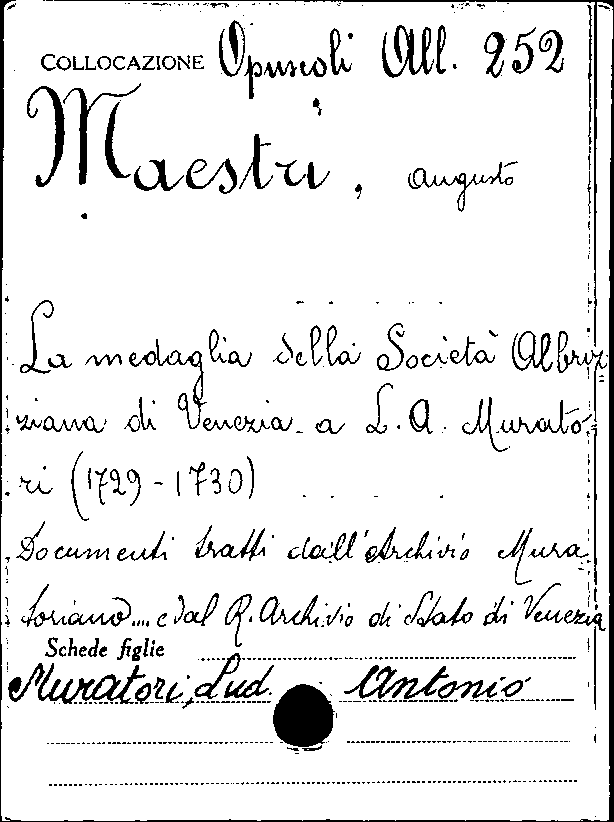 COLLOCAZIONE Opuscoli All. 252
Maestri, Augusto
La medaglia della Società Albriz=
ziana di Venezia a L. A. Murato=
ri (1729-1730)
Documenti tratti dall'Archivio Mura
toriano.... e dal R. Archivio di Stato di Venezia
Schede figlie
Muratori, Lud. Antonio